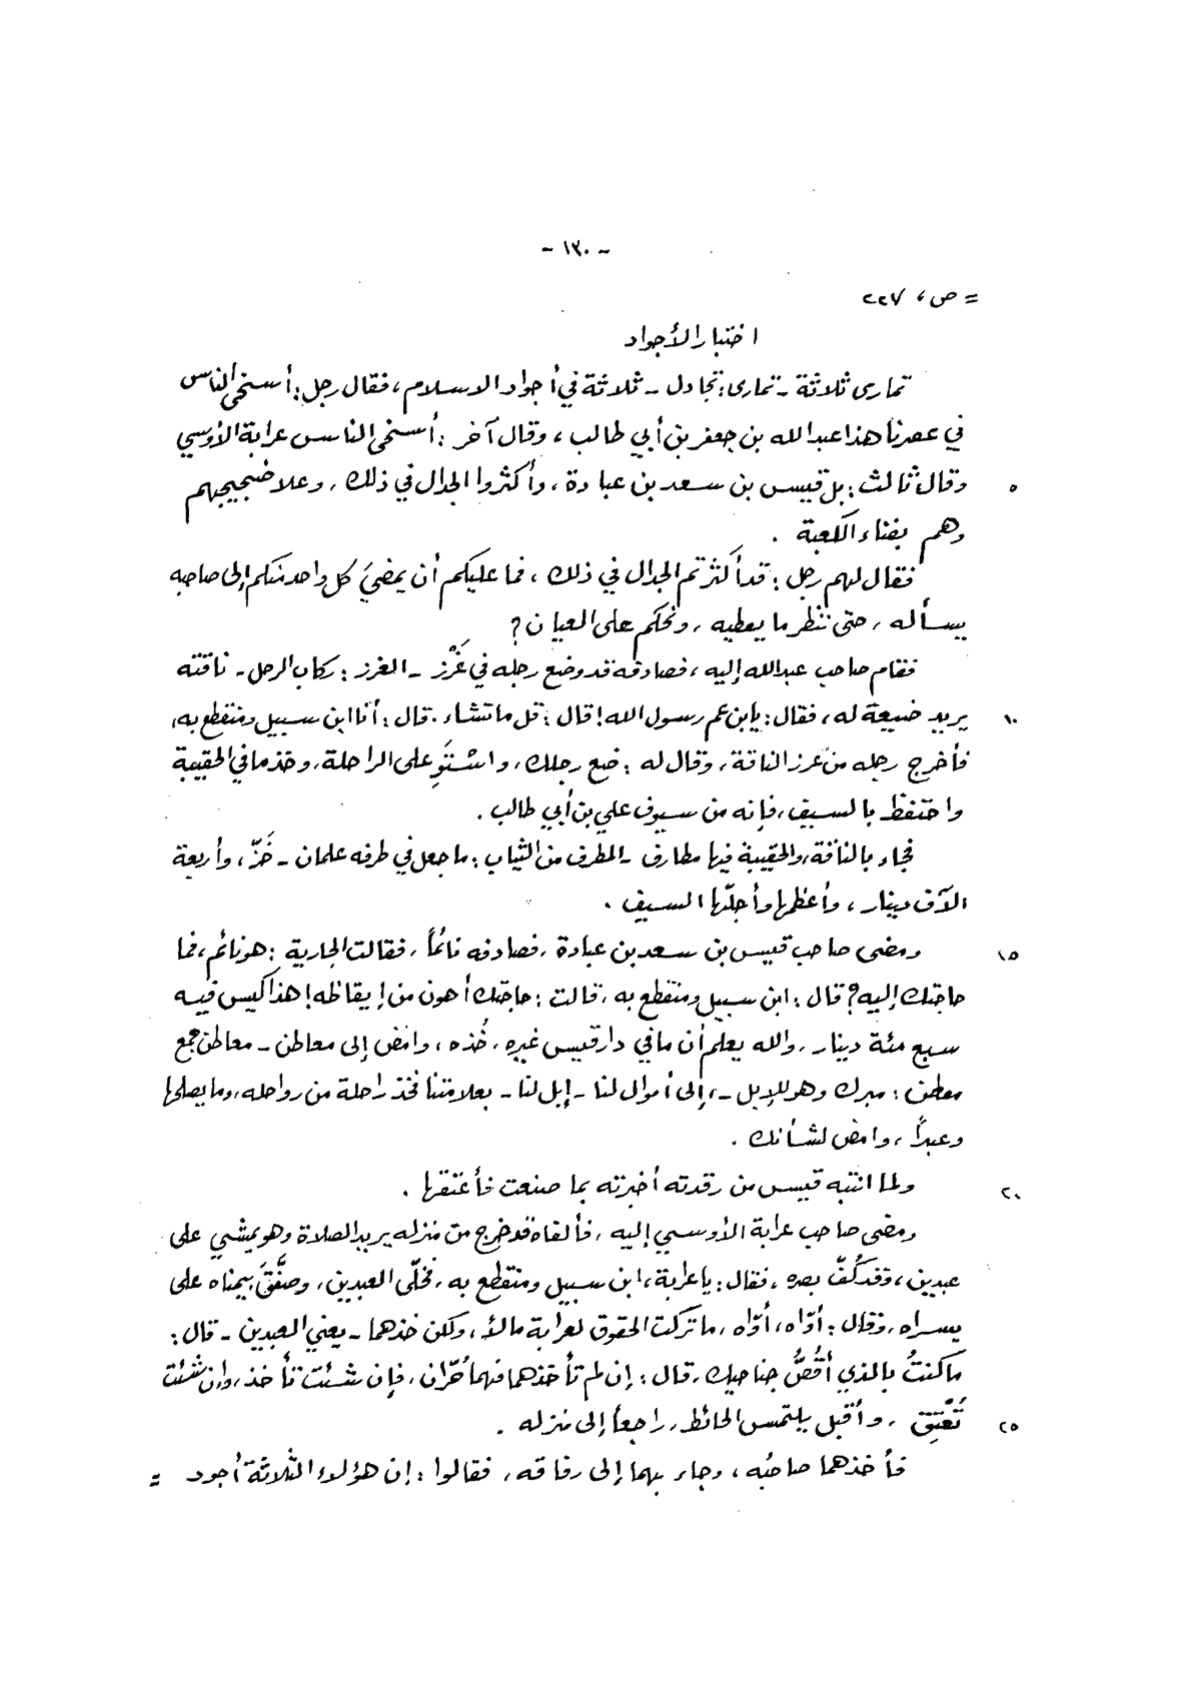 - ١٣٠ -
= ص، ٢٢٧
اختبار الأجواد
تمارى ثلاثة - تمارى: تجادل - ثلاثة في أجواد الاسلام، فقال رجل: أسخى الناس
في عصرنا هذا عبد الله بن جعفر بن أبي طالب، وقال آخر: أسخى الناس عرابة الأوسي
٥ وقال ثالث: بل قيس بن سعد بن عبادة، وأكثروا الجدال في ذلك، وعلا ضجيجهم
وهم بفناء الكعبة .
فقال لهم رجل: قد أكثرتم الجدال في ذلك، فما عليكم أن يمضيَ كل واحد منكم إلى صاحبه
يسأله، حتى ننظر ما يعطيه، ونحكم على العيان؟
فقام صاحب عبد الله إليه، فصادفه قد وضع رجله في غَرْز - الغرز: ركاب الرحل - ناقته
١٠ يريد ضيعة له، فقال: يا بن عم رسول الله! قال: قل ما تشاء. قال: أنا ابن سبيل ومنقطع به،
فأخرج رجله من غرز الناقة، وقال له: ضع رجلك، واستَوِ على الراحلة، وخذ ما في الحقيبة
واحتفظ بالسيف، فإنه من سيوف علي بن أبي طالب.
فجاء بالناقة، والحقيبة فيها مطارق - المطرف من الثياب: ما جعل في طرفه علمان - خَزّ، وأربعة
آلاف دينار، وأعظمها وأجلّها السيف .
١٥ ومضى صاحب قيس بن سعد بن عبادة، فصادفه نائماً، فقالت الجارية: هو نائم، فما
حاجتك إليه؟ قال: ابن سبيل ومنقطع به، قالت: حاجتك أهون من إيقاظه! هذا كيس فيه
سبع مئة دينار، والله يعلم أن ما في دار قيس غيره، خُذه، وامض إلى معاطن - معاطن جمع
معطن: مبرك وهو للإبل -، إلى أموال لنا - إبل لنا - بعلامتنا فخذ راحلة من رواحله، وما يصلحها
وعبداً، وامض لشأنك .
٢٠ ولما انتبه قيس من رقدته أخبرته بما صنعت فأعتقها .
ومضى صاحب عرابة الأوسي إليه، فألفاه قد خرج من منزله يريد الصلاة وهو يمشي على
عبدين، وقد كُفّ بصره، فقال: يا عرابة، ابن سبيل ومنقطع به، فخلّى العبدين، وصفَّقَ بيمناه على
يسراه، وقال: أوّاه، أوّاه، ما تركت الحقوق لعرابة مالاً، ولكن خذهما - يعني العبدين - قال:
ما كنتُ بالذي أقُصُّ جناحيك، قال: إن لم تأخذهما فهما حُرّان، فإن شئت تأخذ، وإن شئت
٢٥ تُعْتِق، وأقبل يلتمس الحائط، راجعاً إلى منزله .
فأخذهما صاحبُه، وجاء بهما إلى رفاقه، فقالوا: إن هؤلاء الثلاثة أجود =